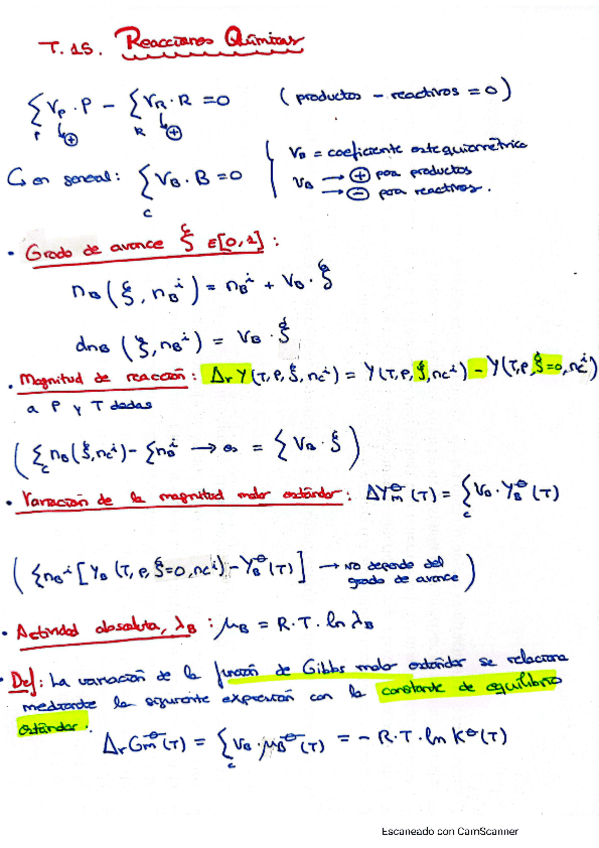 T. 15. Reacciones Químicas
Σ ν_P · P − Σ ν_R · R = 0 (productos − reactivos = 0)
P ↳ ⊕ R ↳ ⊕
↳ en general: Σ ν_B · B = 0
c
ν_B = coeficiente estequiométrico
ν_B → ⊕ para productos
→ ⊖ para reactivos.
• Grado de avance ξ ∈ [0,1] :
n_B (ξ, n_B^i) = n_B^i + ν_B · ξ
dn_B (ξ, n_B^i) = ν_B · ξ
• Magnitud de reacción: Δ_r Y (T, P, ξ, n_c^i) = Y (T, P, ξ, n_c^i) − Y (T, P, ξ=0, n_c^i)
a P y T dadas
(Σ_c n_B (ξ, n_c^i) − Σ n_B^i → es = Σ ν_B · ξ)
• Variación de la magnitud molar estándar: ΔY_m^⊖ (T) = Σ_c ν_B · Y_B^⊖ (T)
(Σ n_B^i [Y_B (T, P, ξ=0, n_c^i) − Y_B^⊖ (T)] → No depende del
grado de avance)
• Actividad absoluta, λ_B : μ_B = R · T · ln λ_B
• Def: La variación de la función de Gibbs molar estándar se relaciona
mediante la siguiente expresión con la constante de equilibrio
estándar.
Δ_r G_m^⊖ (T) = Σ_c ν_B · μ_B^⊖ (T) = − R · T · ln K^⊖ (T)
Escaneado con CamScanner